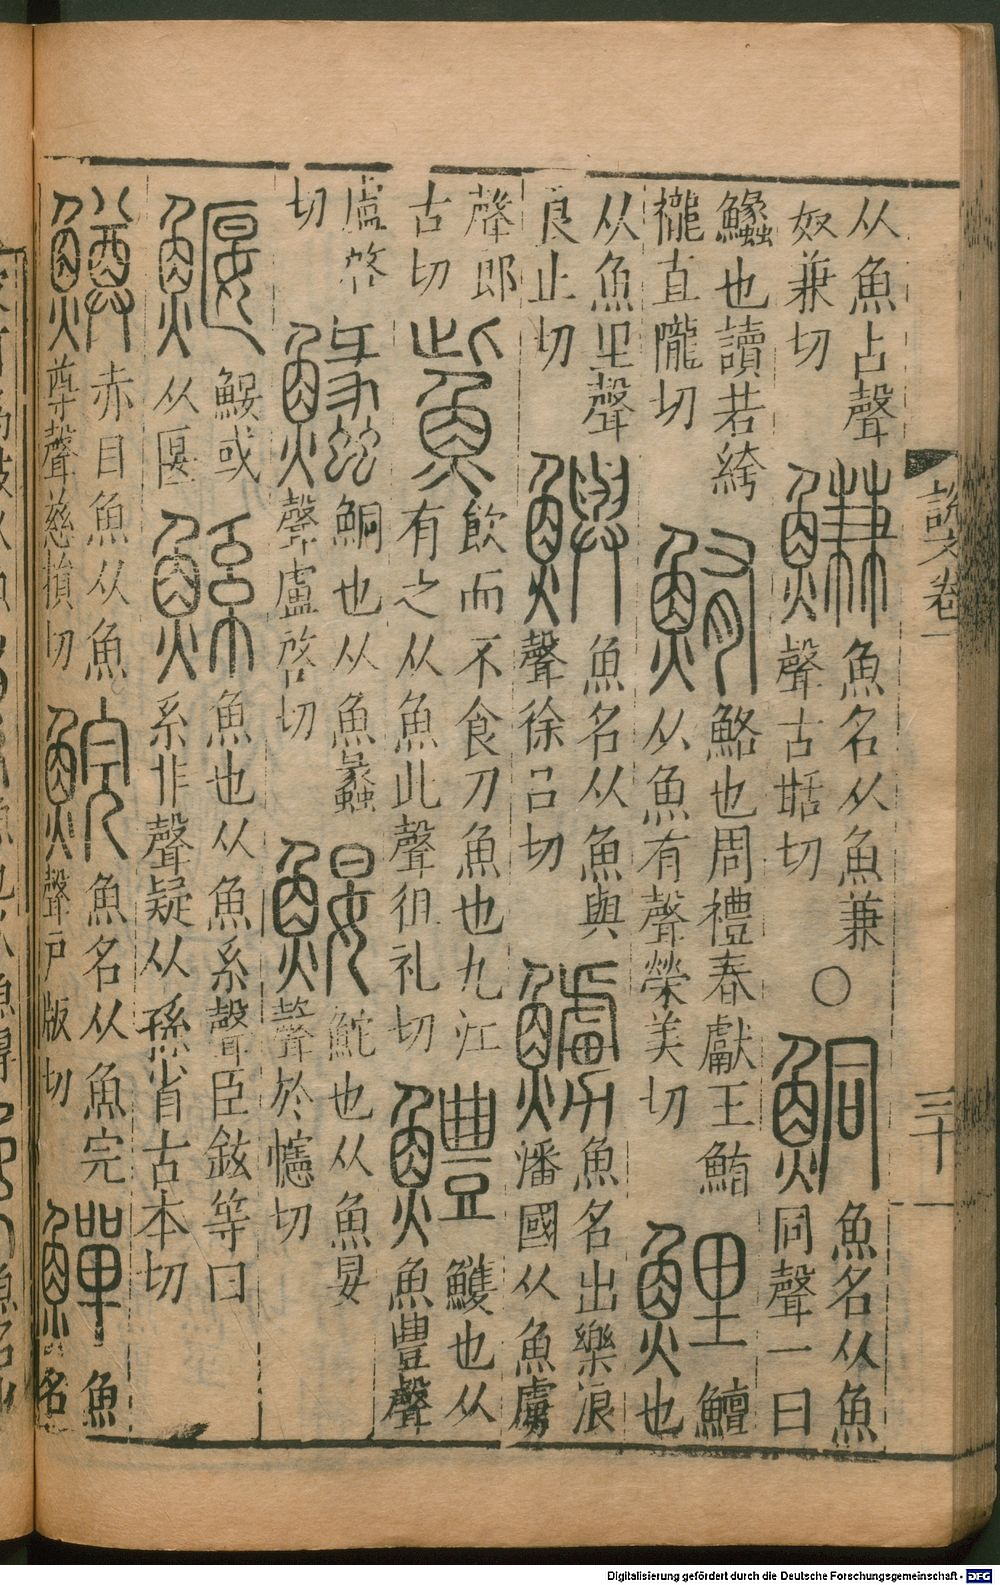 說文卷
三十一
从魚占聲
奴兼切
鰜
魚名从魚兼
聲古甛切
○
鮦
魚名从魚
同聲一曰
䲘也讀若絝
襱直隴切
鮪
鮥也周禮春獻王鮪
从魚有聲榮美切
鯉
鱣
也
从魚里聲
良止切
鱮
魚名从魚與
聲徐吕切
䲐
魚名出樂浪
潘國从魚虜
聲郎
古切
鮆
飲而不食刀魚也九江
有之从魚此聲徂礼切
鱧
鱯也从
魚豐聲
盧啓
切
䲘
鮦也从魚蠡
聲盧啓切
鰋
鮀也从魚妟
聲於幰切
鰋
鰋或
从匽
鯀
魚也从魚系聲臣鉉等曰
系非聲疑从孫省古本切
鱒
赤目魚从魚
尊聲慈損切
鯇
魚名从魚完
聲戶版切
鱓
魚
名
Digitalisierung gefördert durch die Deutsche Forschungsgemeinschaft - DFG